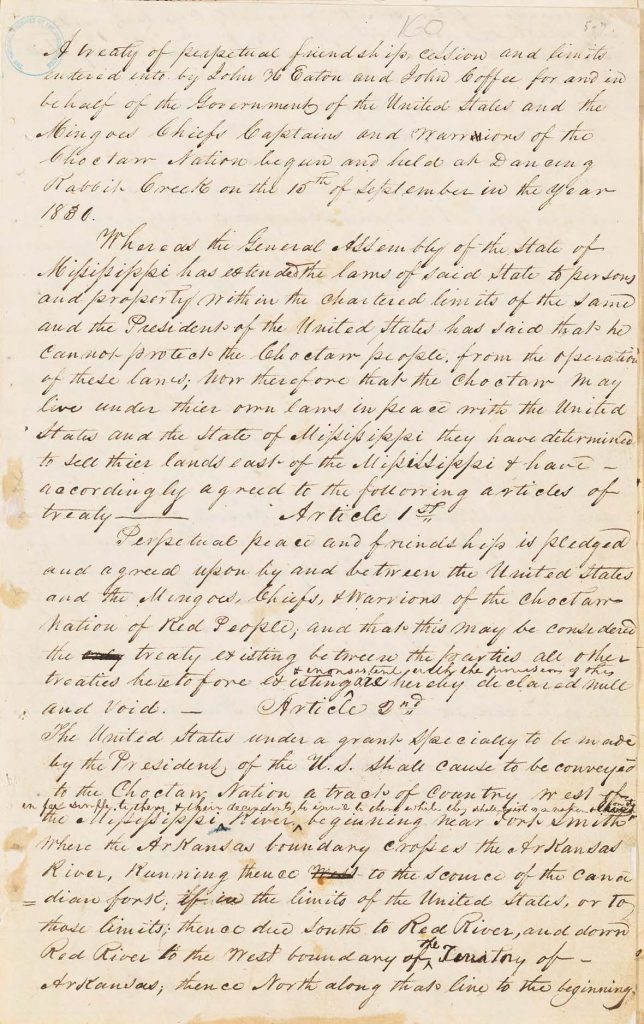 160
A treaty of perpetual friendship, cession and limits
entered into by John H Eaton and John Coffee for and in
behalf of the Government of the United States and the
Mingoes Chiefs Captains and Warriors of the
Choctaw Nation begun and held at Dancing
Rabbit Creek on the 15th of September in the year
1830.
Whereas the General Assembly of the State of
Mississippi has extended the laws of said State to persons
and property within the chartered limits of the same
and the President of the United States has said that he
cannot protect the Choctaw people from the operation
of these laws; Now therefore that the Choctaw may
live under thier own laws in peace with the United
States and the State of Mississippi they have determined
to sell thier lands east of the Mississippi & have –
accordingly agreed to the following articles of
treaty — Article 1st
Perpetual peace and friendship is pledged
and agreed upon by and between the United States
and the Mingoes, Chiefs, & Warriors of the Choctaw
Nation of Red People; and that this may be considered
the treaty existing between the parties all other
& inconsistent with the provisions of this
treaties heretofore existing are hereby declared null
and void. – Article 2nd
The United States under a grant specially to be made
by the President of the U.S. shall cause to be conveyed
to the Choctaw Nation a track of Country west of
in fee simple to them & their decendents, to inure to them while they shall exist as a nation
the Mississippi River, beginning near Fort Smith
where the Arkansas boundary crosses the Arkansas
River, Running thence to the scource of the Cana
dian fork, if in the limits of the United States, or to
those limits; thence due South to Red River, and down
Red River to the West boundary of the Territory of –
Arkansas; thence North along that line to the beginning.